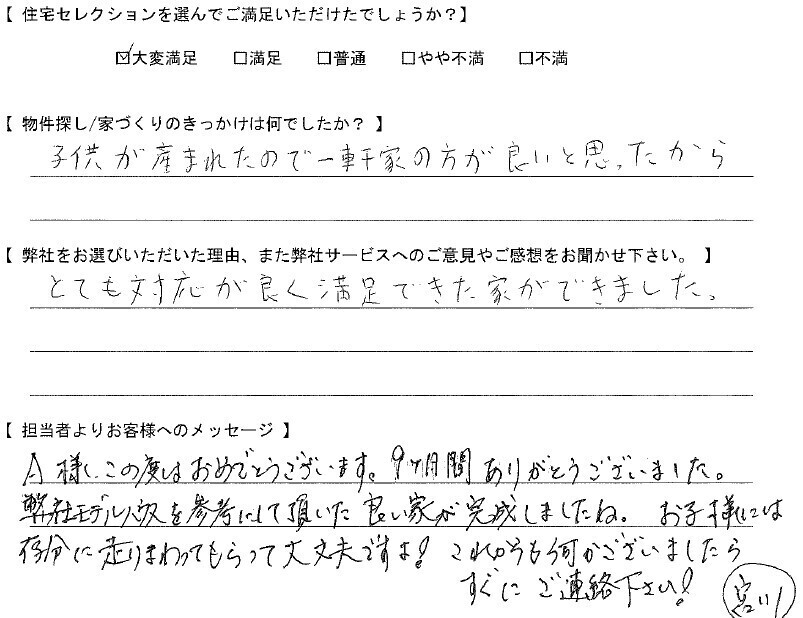 【 住宅セレクションを選んでご満足いただけたでしょうか？】
☑大変満足 □満足 □普通 □やや不満 □不満
【 物件探し/家づくりのきっかけは何でしたか？ 】
子供が産まれたので一軒家の方が良いと思ったから
【 弊社をお選びいただいた理由、また弊社サービスへのご意見やご感想をお聞かせ下さい。 】
とても対応が良く満足できた家ができました。
【 担当者よりお客様へのメッセージ 】
A様、この度はおめでとうございます。9ヶ月間ありがとうございました。
弊社モデルハウスを参考にして頂いた良い家が完成しましたね。お子様には
存分に走りまわってもらって大丈夫ですよ！これからも何かございましたら
すぐにご連絡下さい！ 宮川